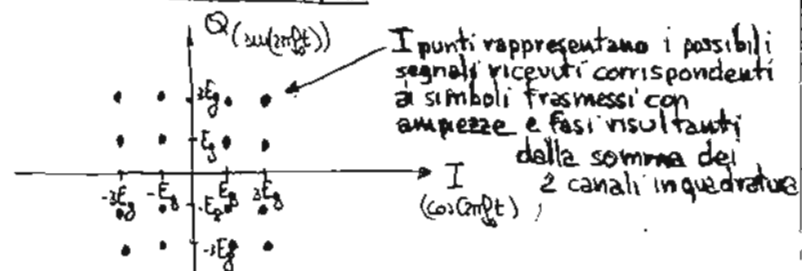 Q (sen(2πf₀t))
I punti rappresentano i possibili
segnali ricevuti corrispondenti
ai simboli trasmessi con
ampezze e fasi risultanti
dalla somma dei
2 canali in quadratura
3Eg
Eg
I
-3Eg -Eg Eg 3Eg
(cos(2πf₀t)
-Eg
-3Eg